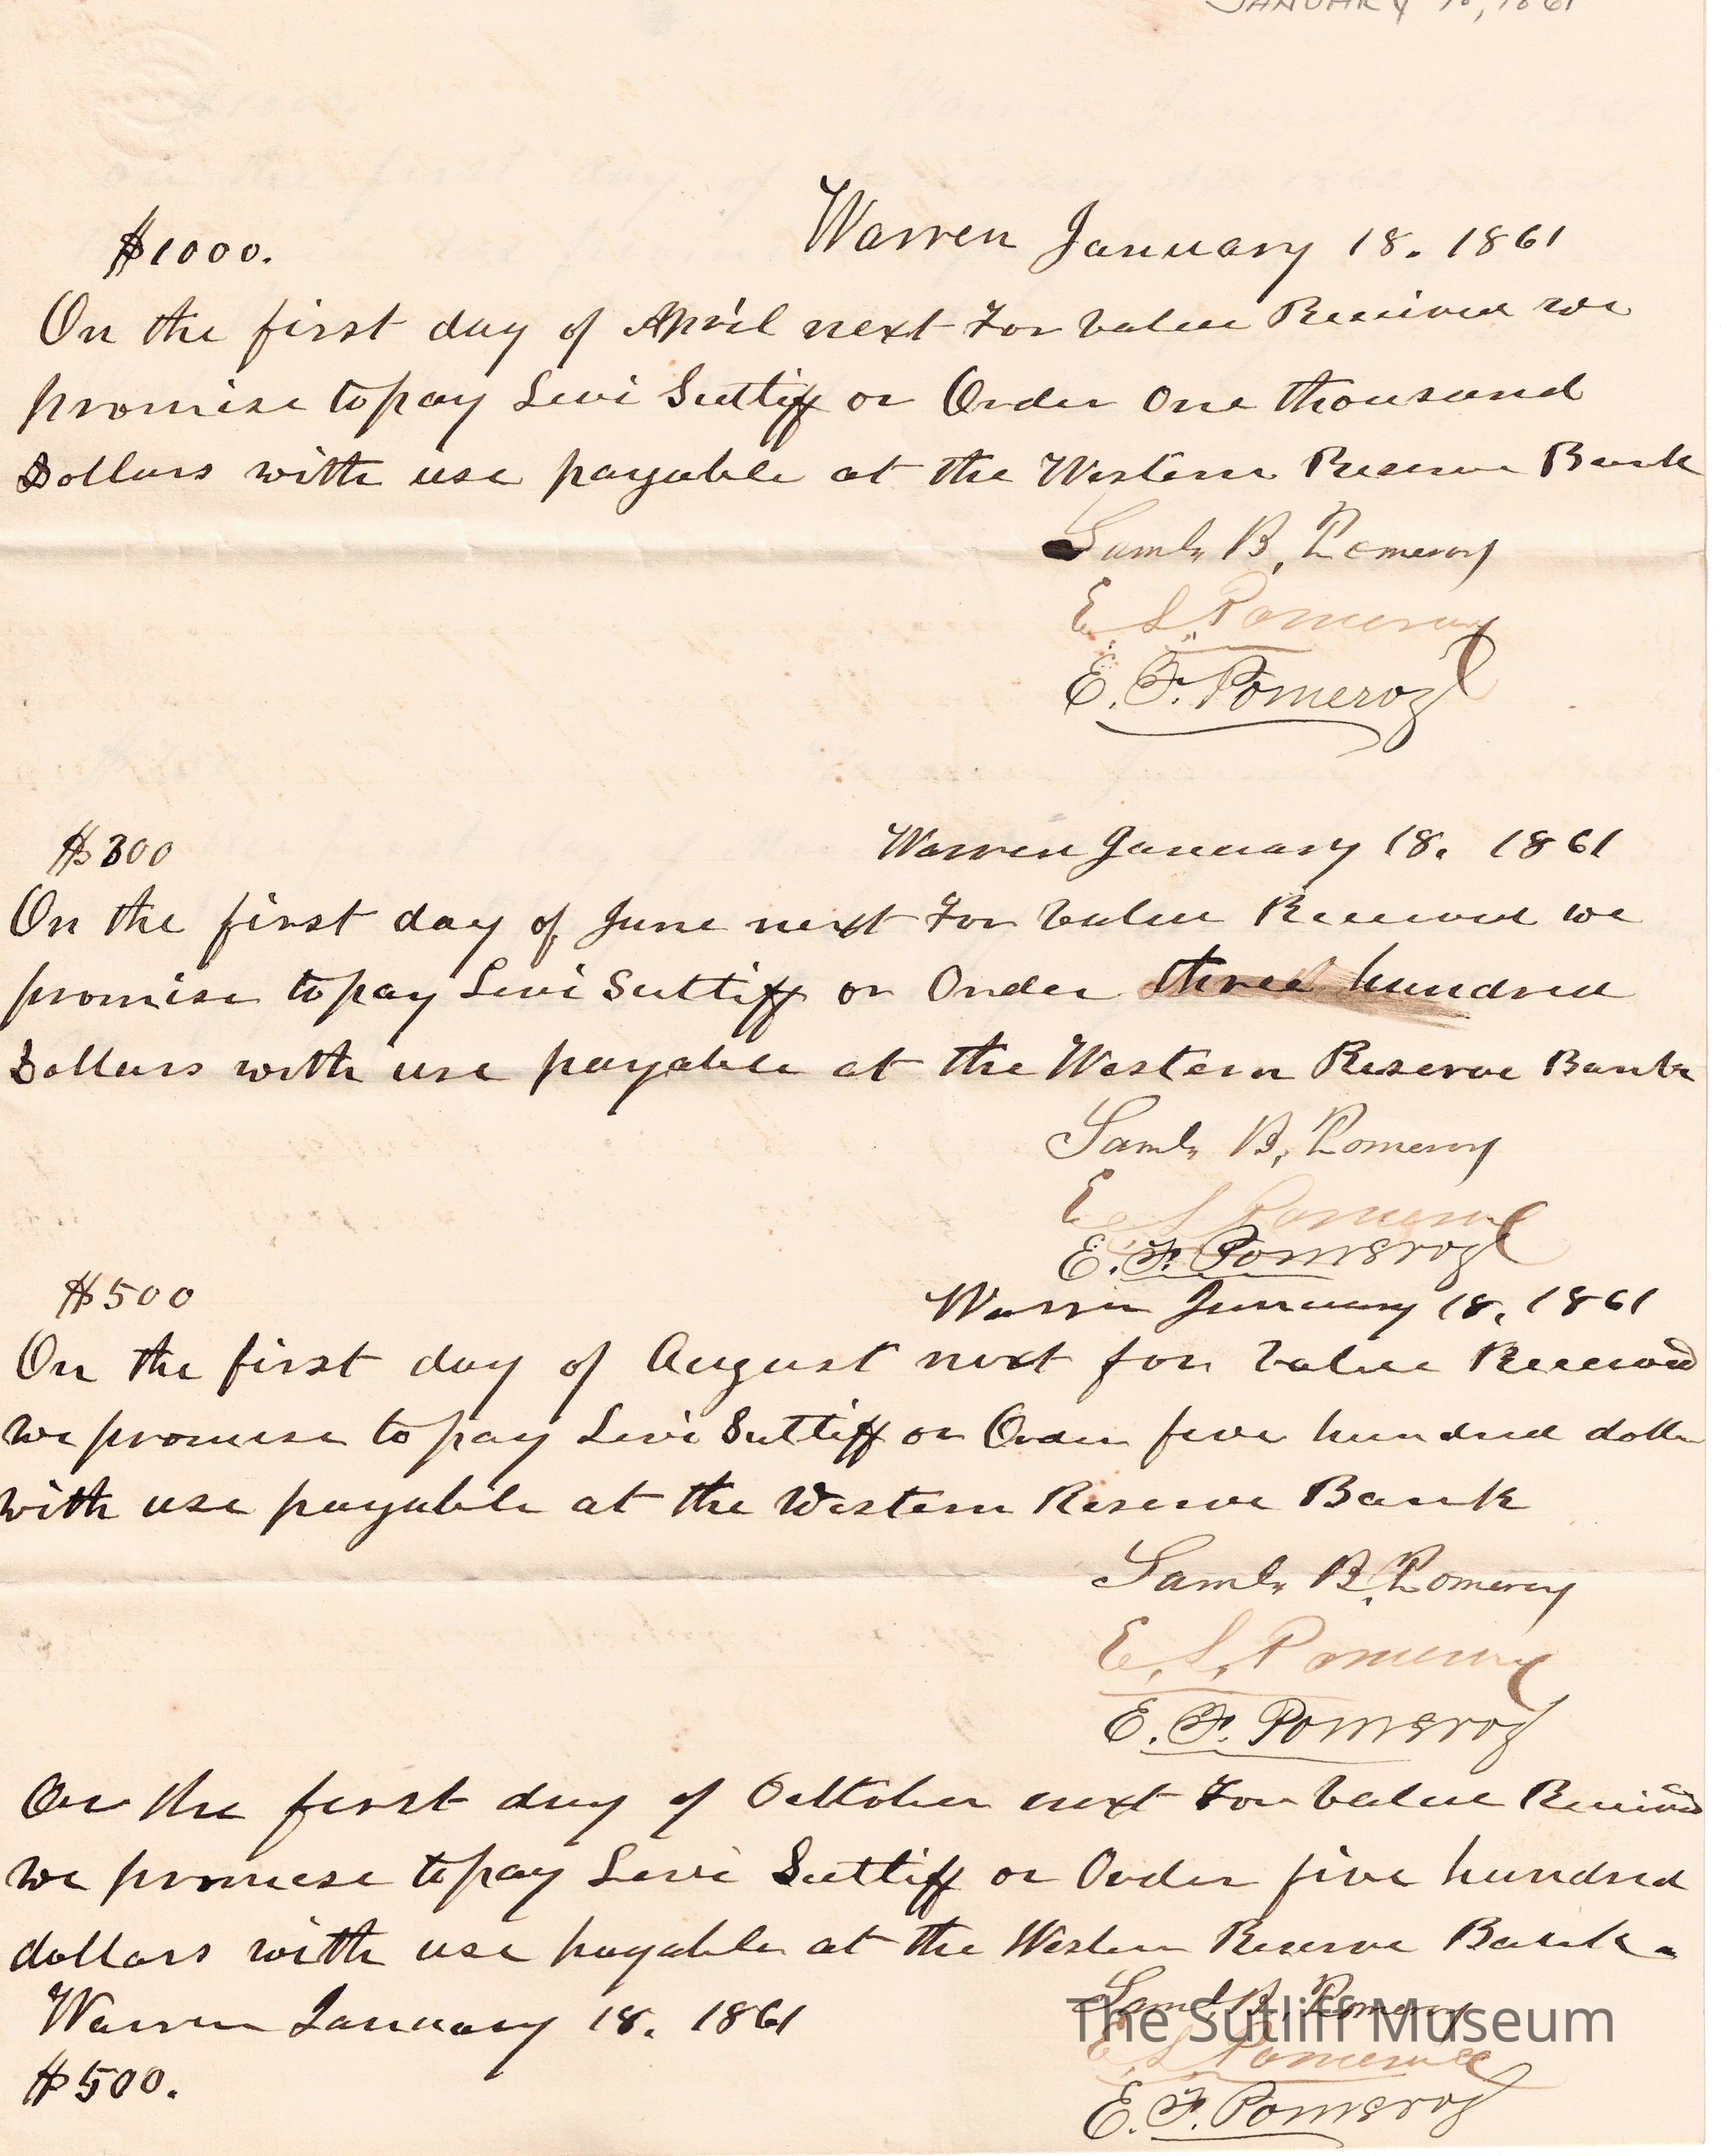 JANUARY 18, 1861
Warren January 18. 1861
$1000.
On the first day of April next For Value Received we
promise to pay Levi Sutliff or Order One thousand
Dollars with use payable at the Western Reserve Bank
Saml. B. Pomeroy
E S Pomeroy
E. F. Pomeroy
$300 Warren January 18. 1861
On the first day of June next For Value Received we
promise to pay Levi Sutliff or Order three hundred
Dollars with use payable at the Western Reserve Bank
Saml. B. Pomeroy
E S Pomeroy
E. F. Pomeroy
$500 Warren January 18. 1861
On the first day of August next for Value Received
we promise to pay Levi Sutliff or Order five hundred doll
with use payable at the Western Reserve Bank
Saml. B. Pomeroy
E. S. Pomeroy
E. F. Pomeroy
On the first day of Octtober next For Value Received
we promise to pay Levi Sutliff or Order five hundred
dollars with use payable at the Western Reserve Bank.
Warren January 18. 1861 Saml. B. Pomeroy
The Sutliff Museum
E. S. Pomeroy
$500. E. F. Pomeroy